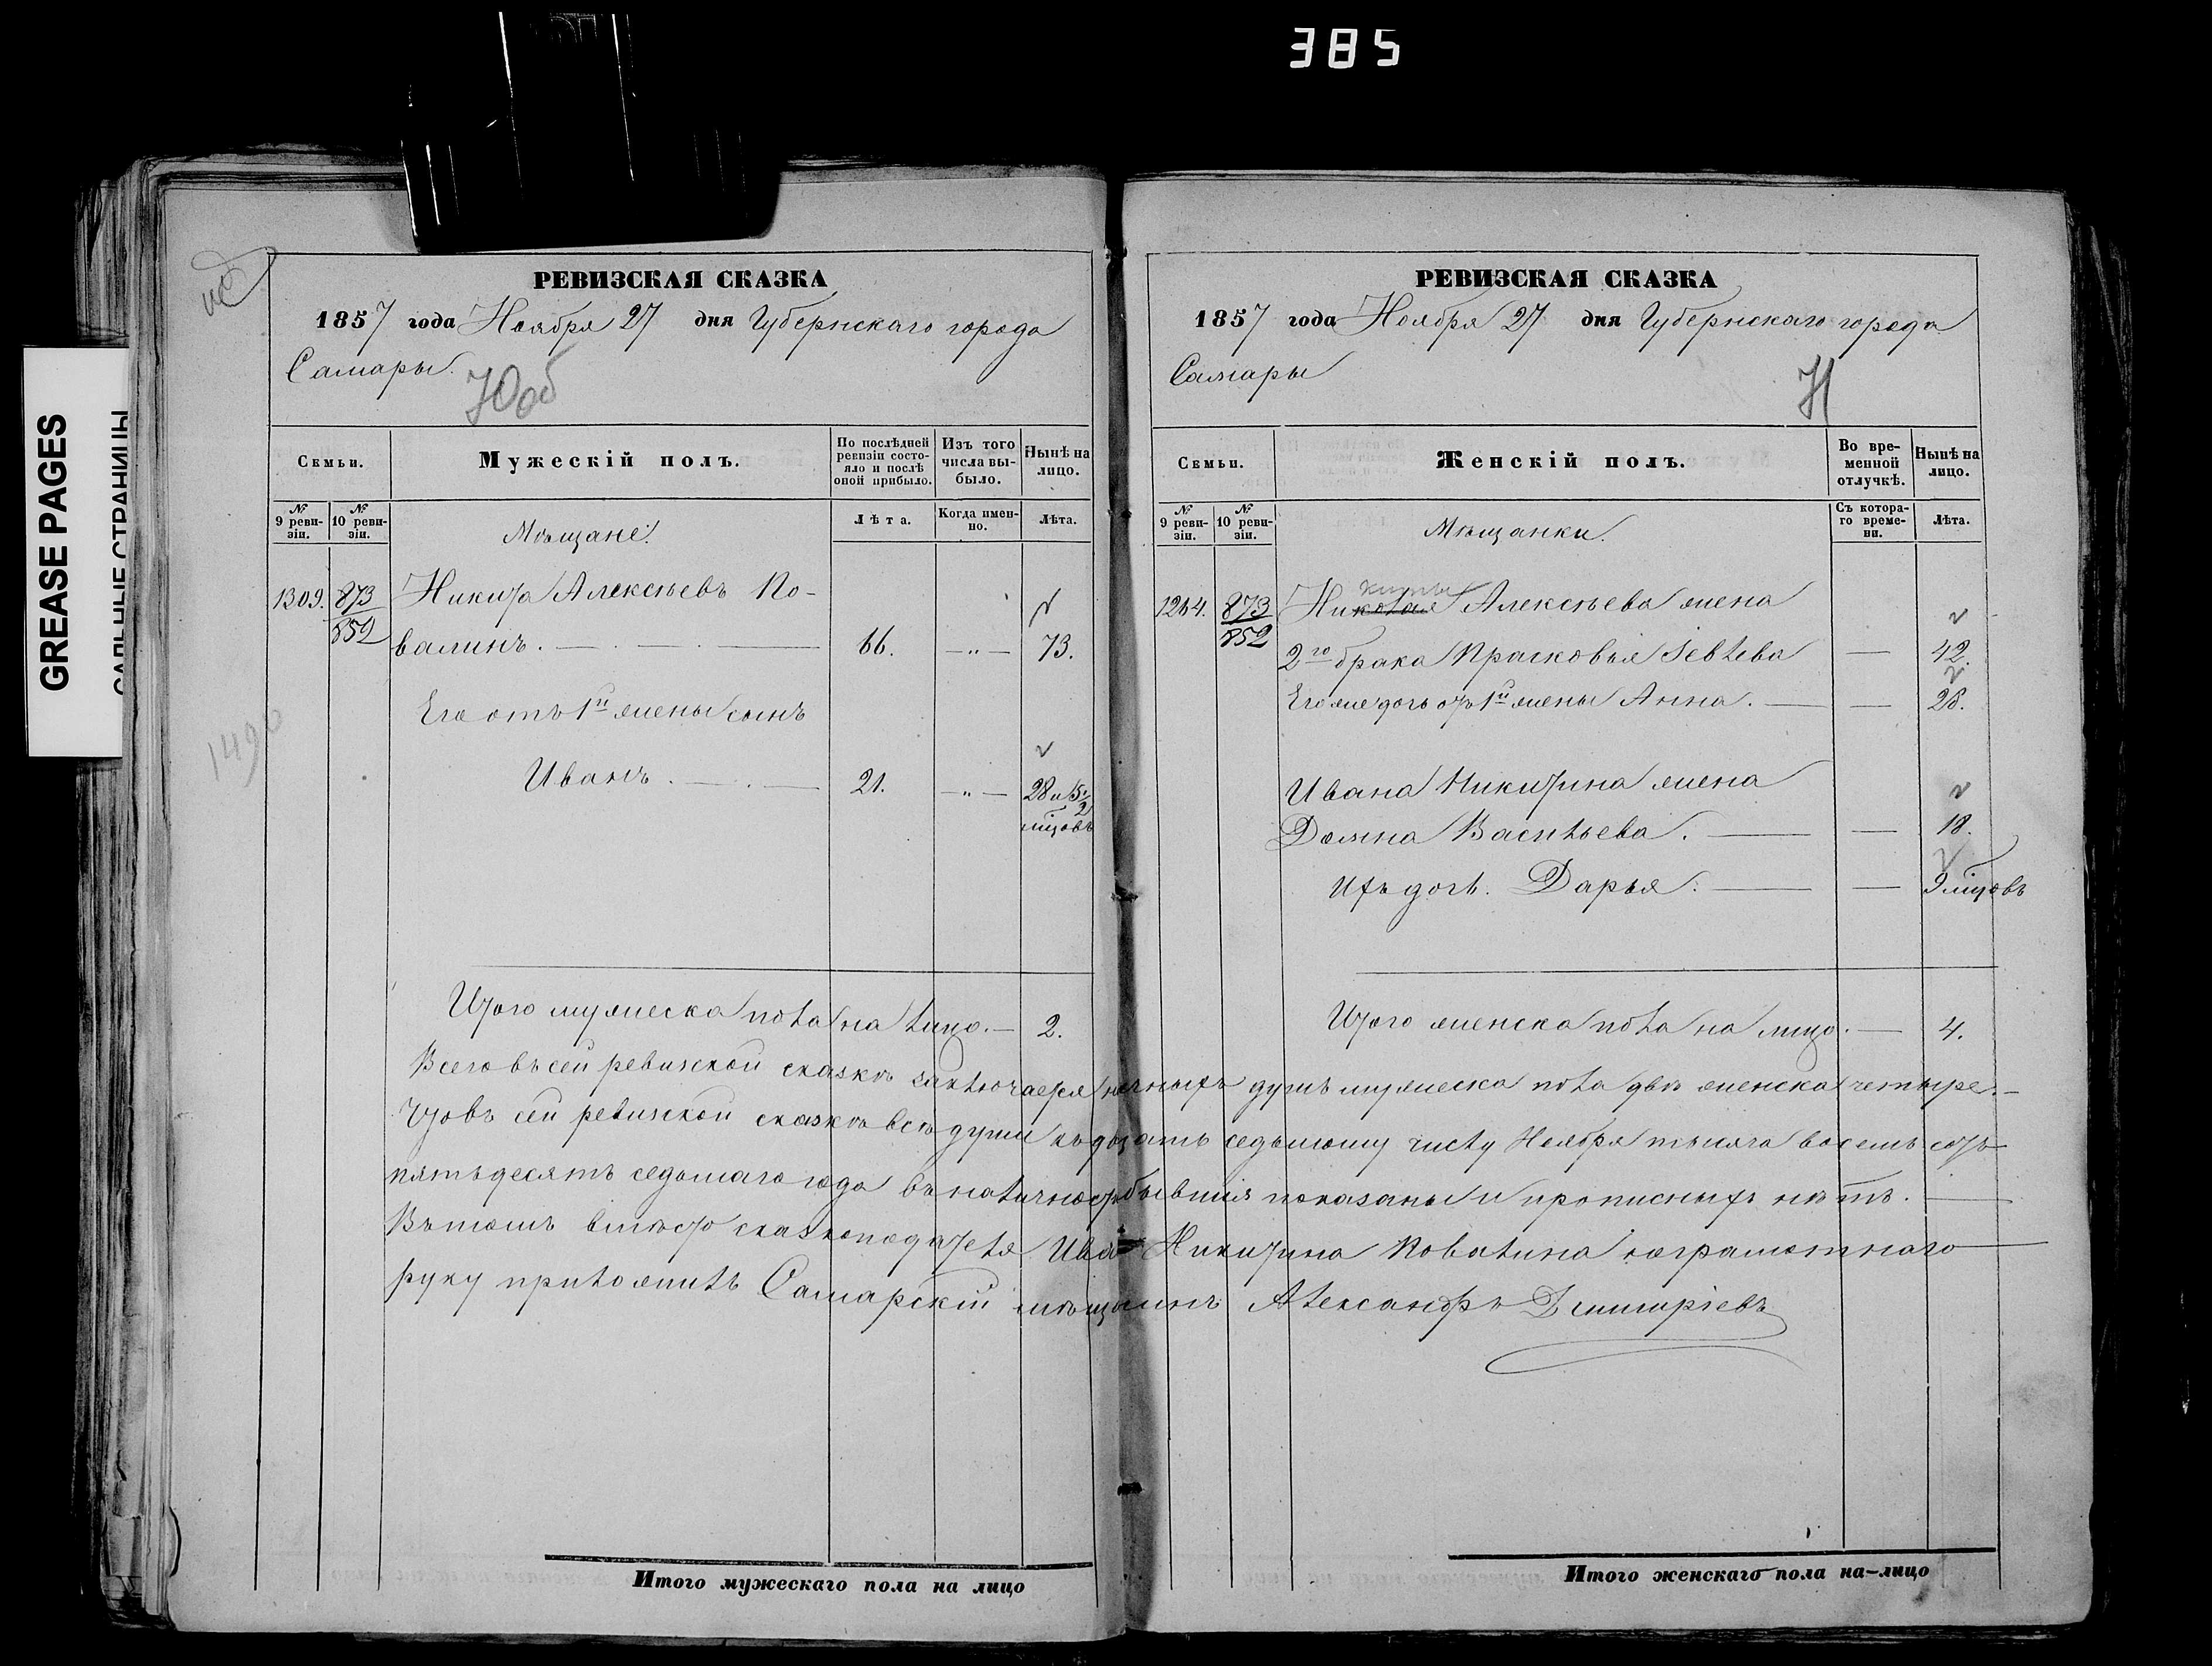 385
GREASE PAGES
САЛЬНЫЕ СТРАНИЦЫ
1490
РЕВИЗСКАЯ СКАЗКА
1857 года Ноября 27 дня Губернскаго города
Самары.
70 об
Семьи.
Мужескій полъ.
По послѣдней ревизіи состояло и послѣ оной прибыло.
Изъ того числа выбыло.
Нынѣ на лицо.
№ 9 ревизіи.
№ 10 ревизіи.
Мѣщане.
Лѣта.
Когда именно.
Лѣта.
1309. 873 Никита Алексѣевъ По-
852 валинъ. 66. —„— 73.
Его отъ 1й жены сынъ
Иванъ. 21. —„— 28 и 5 1/2
мѣцовъ
Итого мужеска пола на лицо. — 2.
РЕВИЗСКАЯ СКАЗКА
1857 года Ноября 27 дня Губернскаго города
Самары
71
Семьи.
Женскій полъ.
Во временной отлучкѣ.
Нынѣ на лицо.
№ 9 ревизіи.
№ 10 ревизіи.
Мѣщанки.
Съ котораго времени.
Лѣта.
киты
1264. 873 Николая Алексѣева жена
852 2го брака Прасковья — 42.
Его же дочь отъ 1й жены Анна. — — 28.
Ивана Никитина жена
Домна Васильева. — — 18.
Ихъ дочь. Дарья. — — 9 мѣцовъ
Итого женска пола на лицо. — 4.
Всего въ сей ревизской сказкѣ заключается наличныхъ душъ мужеска пола двѣ женска четыре. —
Что въ сей ревизской сказкѣ всѣ души къ двадцать седьмому числу Ноября тысяча восемь сотъ
пятьдесятъ седьмаго года въ наличности бывшія показаны и прописныхъ нѣтъ.
Въ томъ вмѣсто сказкоподателя Ива Никитина Повалина неграмотнаго
руку приложилъ Самарскій мѣщанинъ Александръ Дмитріевъ
Итого мужескаго пола на лицо
Итого женскаго пола на-лицо